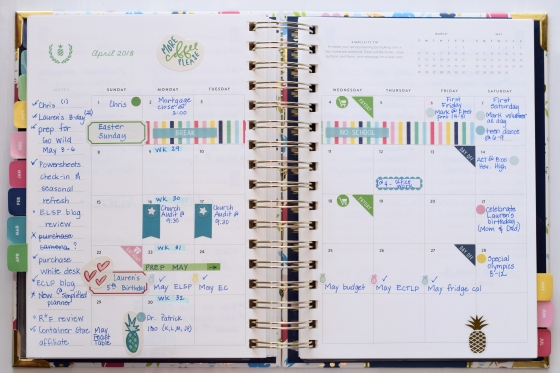 April 2018
MORE
Coffee
PLEASE
SIMPLICITY
NOTES
SUNDAY
MONDAY
TUESDAY
WEDNESDAY
THURSDAY
FRIDAY
SATURDAY
Chris (1)
Lauren's B-day
prep for
Go Wild
May 3-6
Powersheets
check-in &
seasonal
refresh
BLSP blog
review
purchase
camera ?
purchase
white desk
ECLP blog
New Simplified
planner
R*F review
Container Store
affiliate
Chris
Mortgage
close at
2:00
Easter
Sunday
BREAK
WK 29
WK 30
Church
Audit @
9:30
Church
Audit @
9:30
WK 31
PREP MAY
Lauren's
5th Birthday
May ELSP
May EC
WK 32
May
Feast
Table
Dr. Patrick
1:30 (K, L, M, JF)
First
Friday
First
Saturday
Mark volunteer
all day
teen dance
@ 6-9
NO SCHOOL
PAY DAY
ACT @ 8:00
Hov. High
office
work
Celebrate
Lauren's
birthday
(Mom & Dad)
PAY DAY
Special
Olympics
8-12
May budget
May ECTLP
May fridge cal